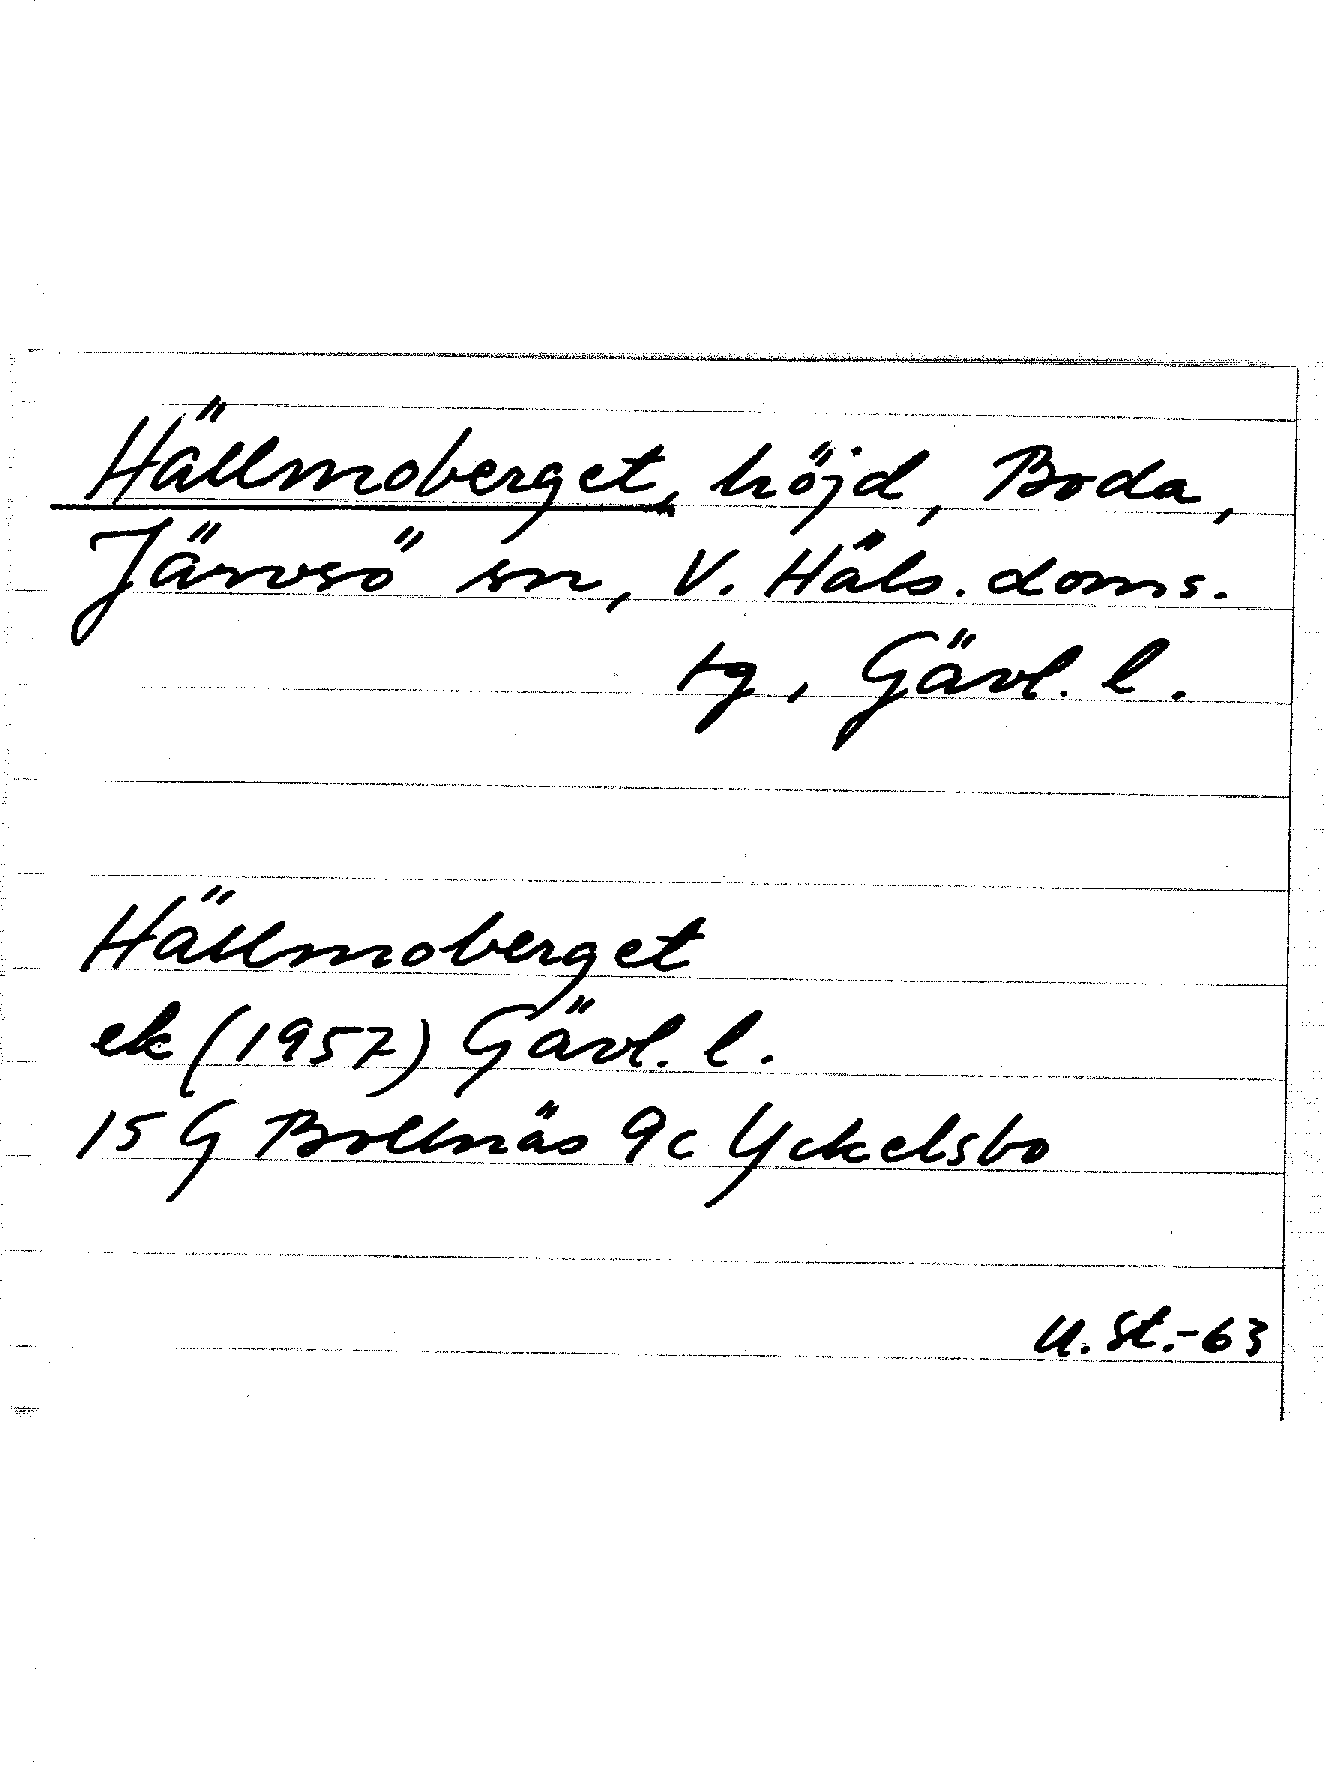 Hällmoberget, höjd, Boda,
Järvsö sn, V. Häls. doms.
tg, Gävl. l.
Hällmoberget
ek (1957) Gävl. l.
15 G Bollnäs 9c Yckelsbo
U. St.-63